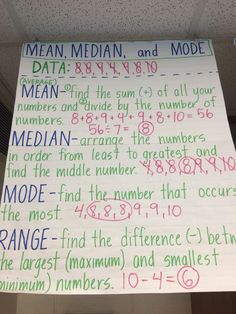 MEAN, MEDIAN, and MODE
DATA: 8,8,9,4,9,8,10
(AVERAGE)
MEAN-①find the sum (+) of all your
numbers and ②divide by the number of
numbers. 8+8+9+4+9+8+10=56
56÷7=8
MEDIAN-arrange the numbers
in order from least to greatest and
find the middle number. 4,8,8,8,9,9,10
MODE-find the number that occurs
the most. 4,8,8,8,9,9,10
RANGE-find the difference (-) betw
the largest (maximum) and smallest
minimum) numbers. 10-4=6